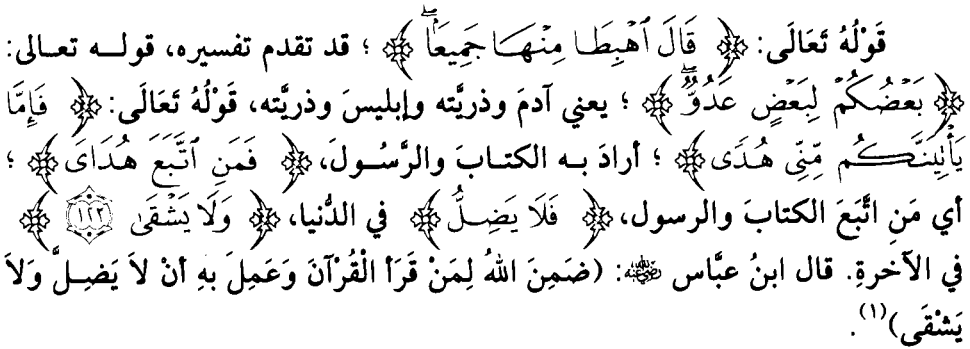 قَوْلُهُ تَعَالَى: ﴿ قَالَ ٱهْبِطَا مِنْهَا جَمِيعًاۖ ﴾ ؛ قد تقدم تفسيره، قولـه تعـالى:
﴿ بَعْضُكُمْ لِبَعْضٍ عَدُوٌّۖ ﴾ ؛ يعني آدمَ وذريَّته وإبليسَ وذريَّته، قَوْلُهُ تَعَالَى: ﴿ فَإِمَّا
يَأْتِيَنَّكُم مِّنِّى هُدًى ﴾ ؛ أرادَ بـه الكتـابَ والرَّسُـولَ، ﴿ فَمَنِ ٱتَّبَعَ هُدَاىَ ﴾ ؛
أي مَنِ اتَّبَعَ الكتابَ والرسول، ﴿ فَلَا يَضِلُّ ﴾ في الدُّنيا، ﴿ وَلَا يَشْقَىٰ ١٢٣ ﴾
في الآخرةِ. قال ابنُ عبَّاس رضي الله عنه: (ضَمِنَ اللهُ لِمَنْ قَرَأ الْقُرْآنَ وَعَمِلَ بهِ أنْ لاَ يَضِـلَّ وَلاَ
يَشْقَى)(١).